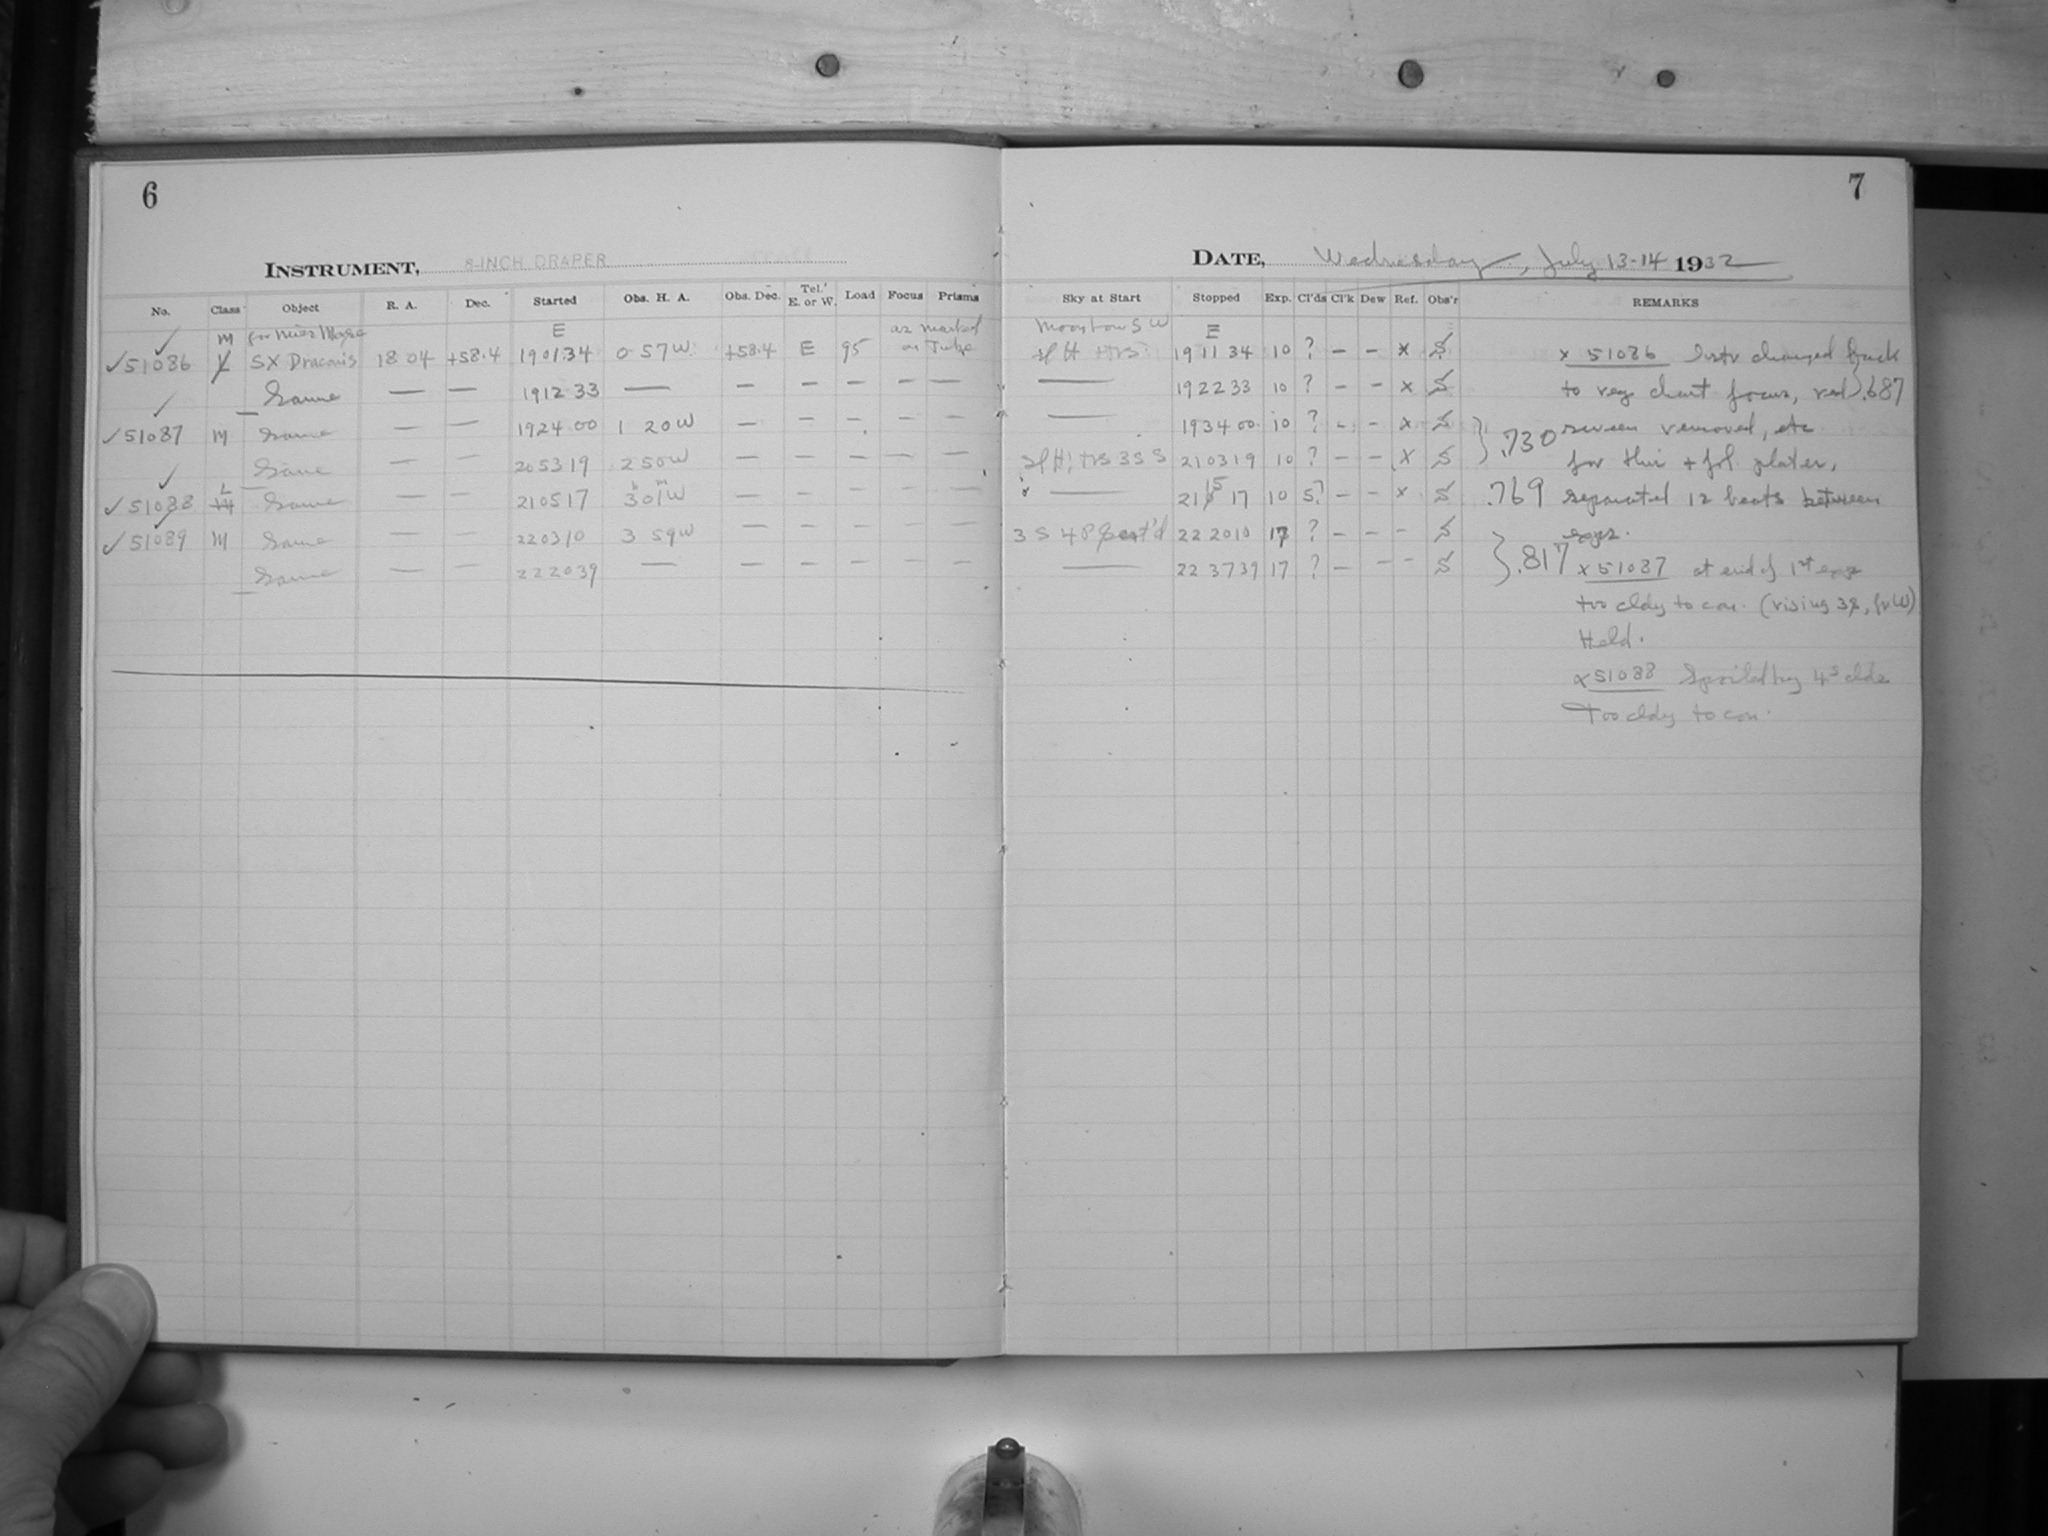 6
INSTRUMENT, 8-INCH DRAPER
No. Class Object R. A. Dec. Started Obs. H. A. Obs. Dec. Tel. E. or W. Load Focus Prisms
M for Miss E as marked
✓51086 SX Draconis 18 04 +58.4 19 01 34 0 57 W +58.4 E 95 on Tube
Same — — 19 12 33 — — — — — —
✓51087 M Same — — 19 24 00 1 20 W — — — — —
Same — — 20 53 19 2 50 W — — — — —
✓51088 L Same — — 21 05 17 3h 01m W — — — — —
✓51089 M Same — — 22 03 10 3 59 W — — — — —
Same — — 22 20 39 — — — — — —
7
DATE, Wednesday, July 13-14 1932
Sky at Start Stopped Exp. Cl'ds Cl'k Dew Ref. Obs'r REMARKS
Moon low SW E
19 11 34 10 ? — — x x 51086 Instr changed back
— 19 22 33 10 ? — — x to reg chart focus, red .687
— 19 34 00 10 ? — — x } .730 screen removed, etc
21 03 19 10 ? — — x for this + fol. plates,
— 21 15 17 10 5? — — x .769 separated 12 beats between
3 S 4 P 22 20 10 17 ? — — — exps.
— 22 37 39 17 ? — — — } .817 x 51087 at end of 1st exp
too cldy to con. (rising 3s, fr W)
Held.
x 51088 Spoiled by 4s clds
Too cldy to con.